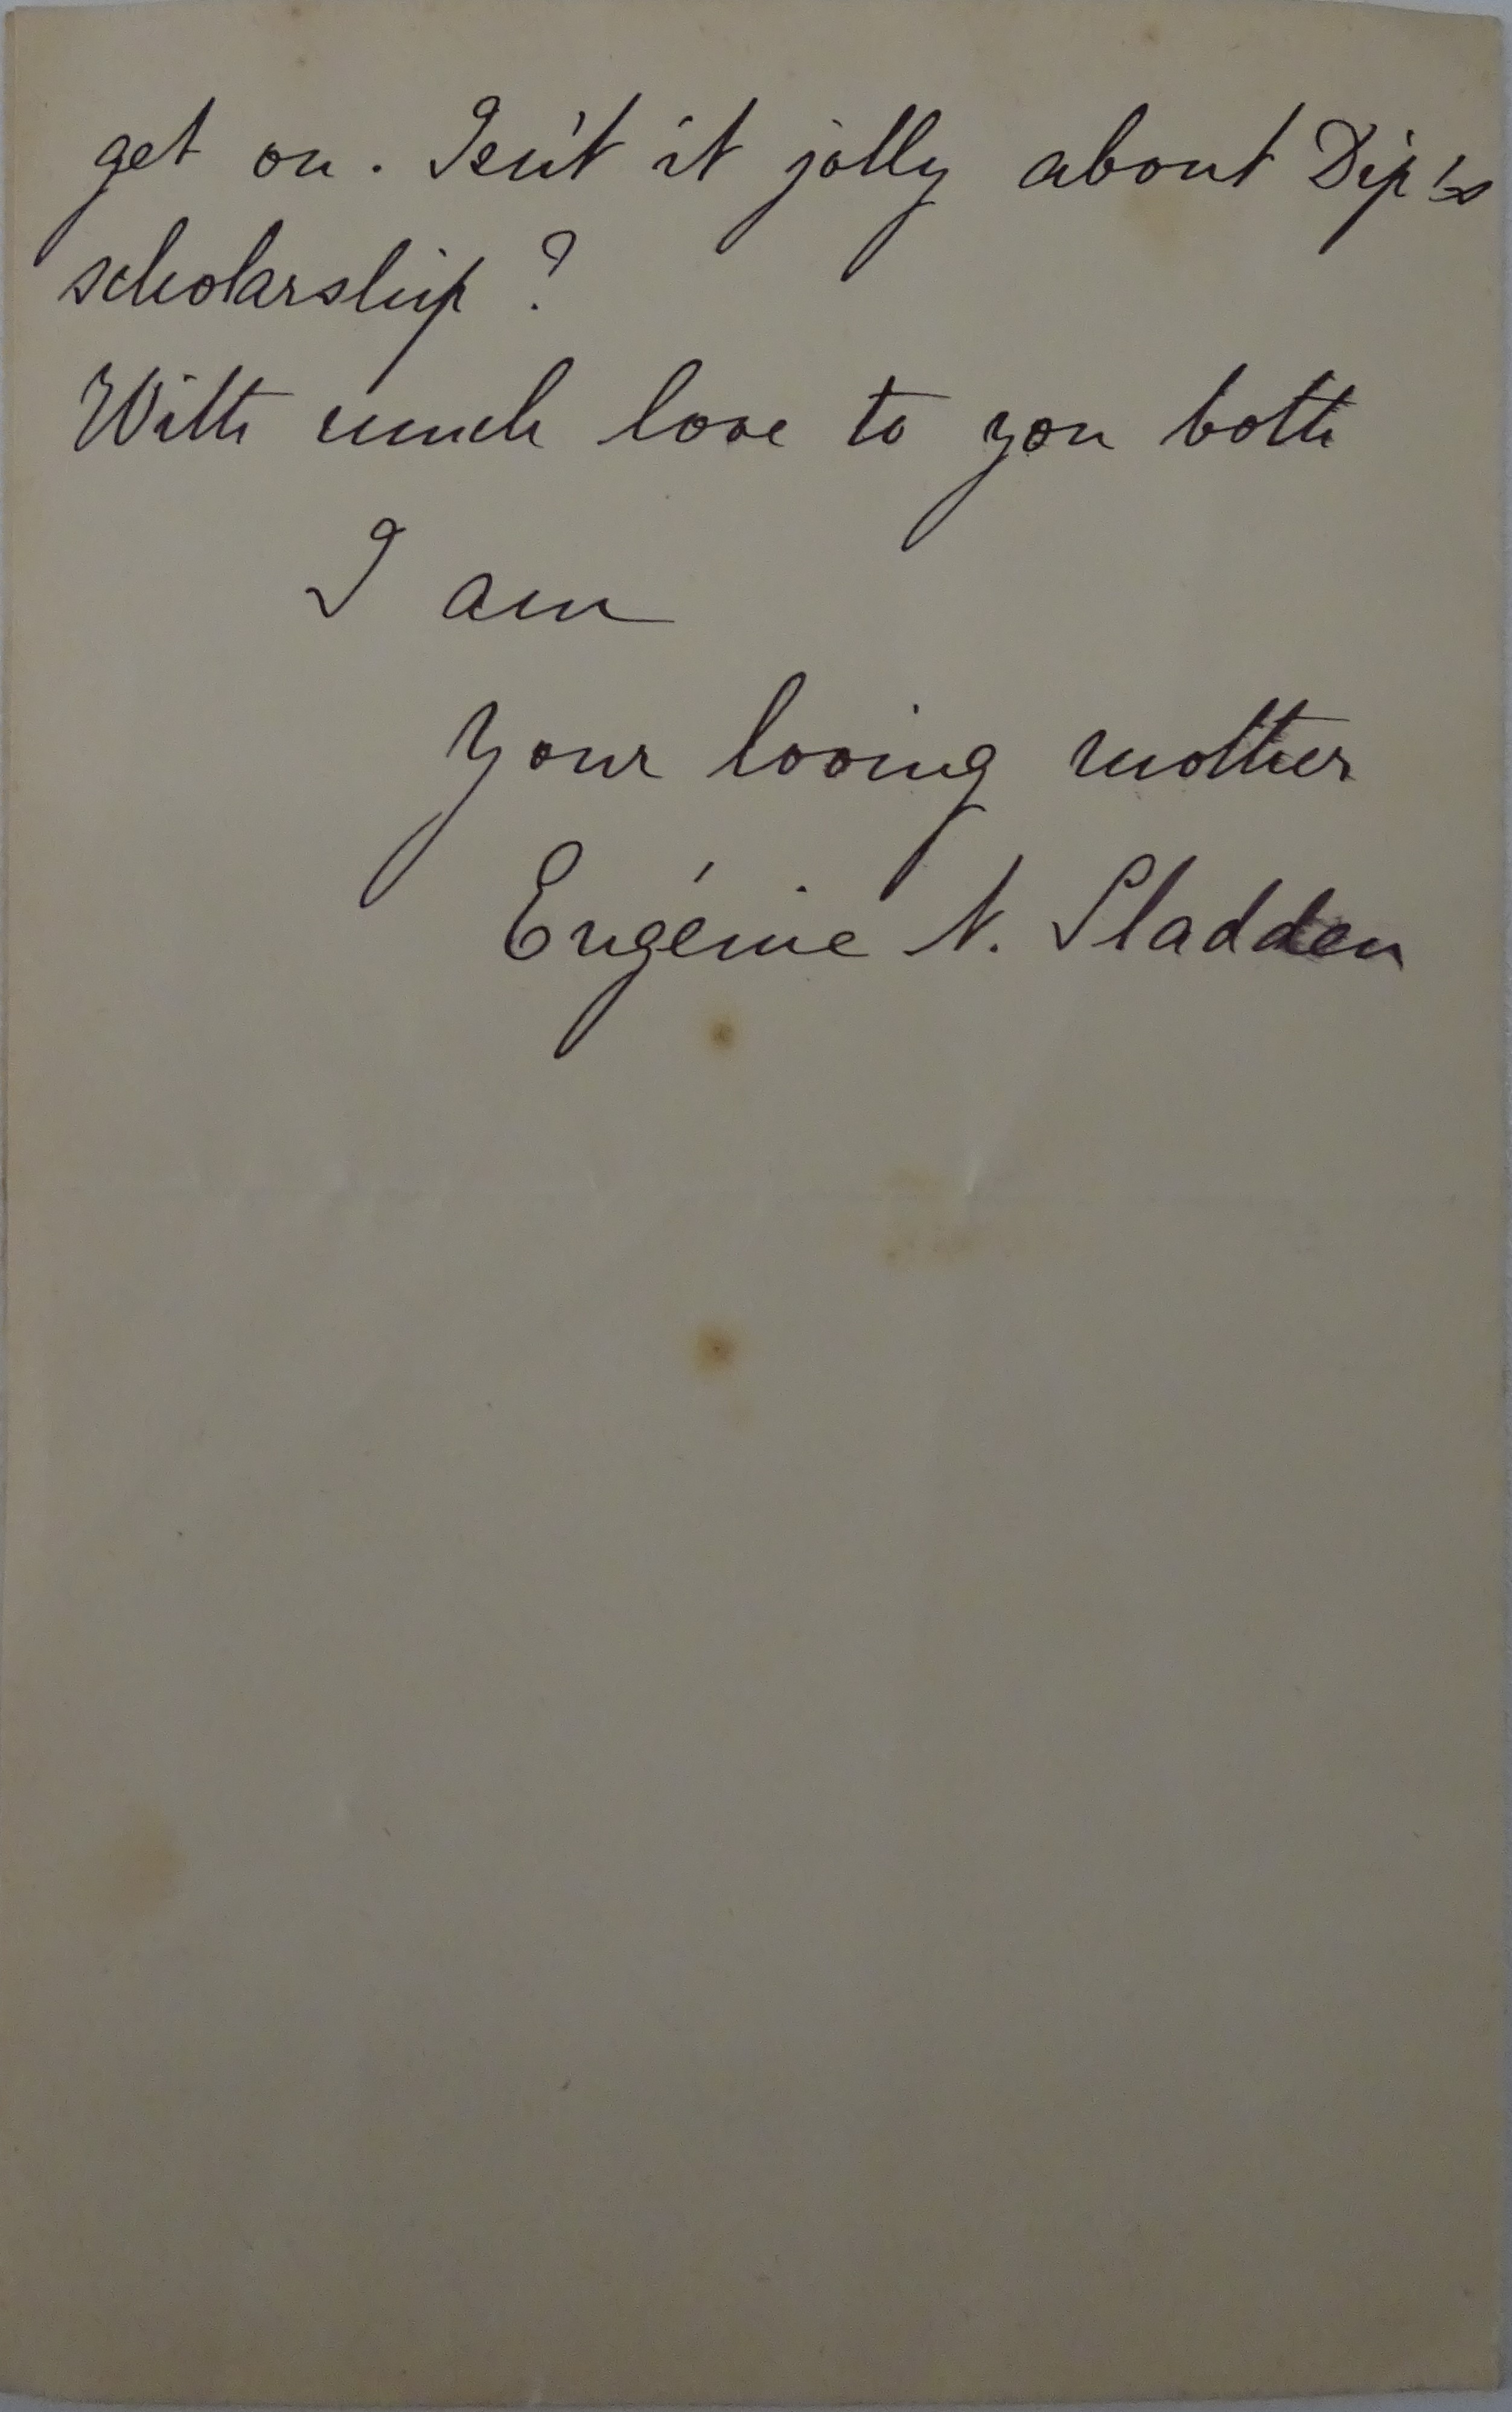 get on. Isn't it jolly about Dip's
scholarship?
With much love to you both
I am
your loving mother
Eugénie N. Sladden